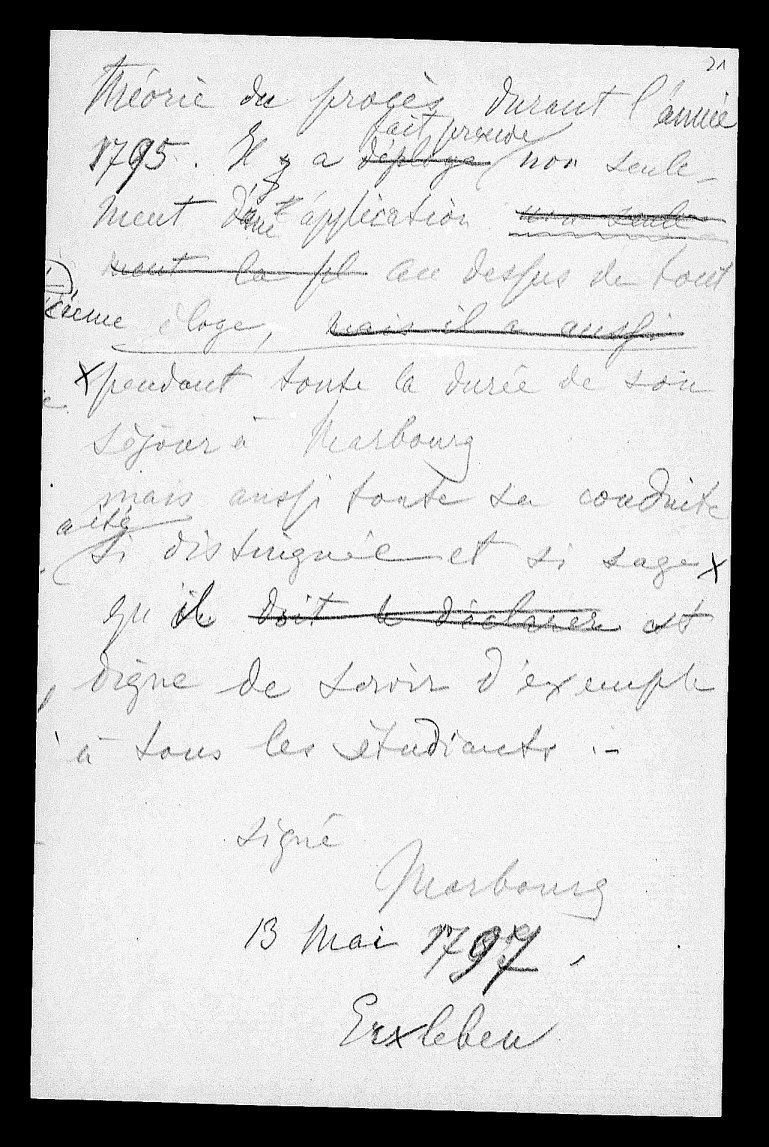 21
théorie du procès durant l'année
1795. Il y a déployé fait preuve non seule-
ment d'une application non seule
ment la pl au dessus de tout
éloge, mais il a aussi
pendant toute la durée de son
séjour à Marbourg
mais aussi toute sa conduite
a été
si distinguée et si sage
qu'il doit le déclarer est
digne de servir d'exemple
à tous les étudiants.-
signé
Marbourg
13 Mai 1797,
Erxleben